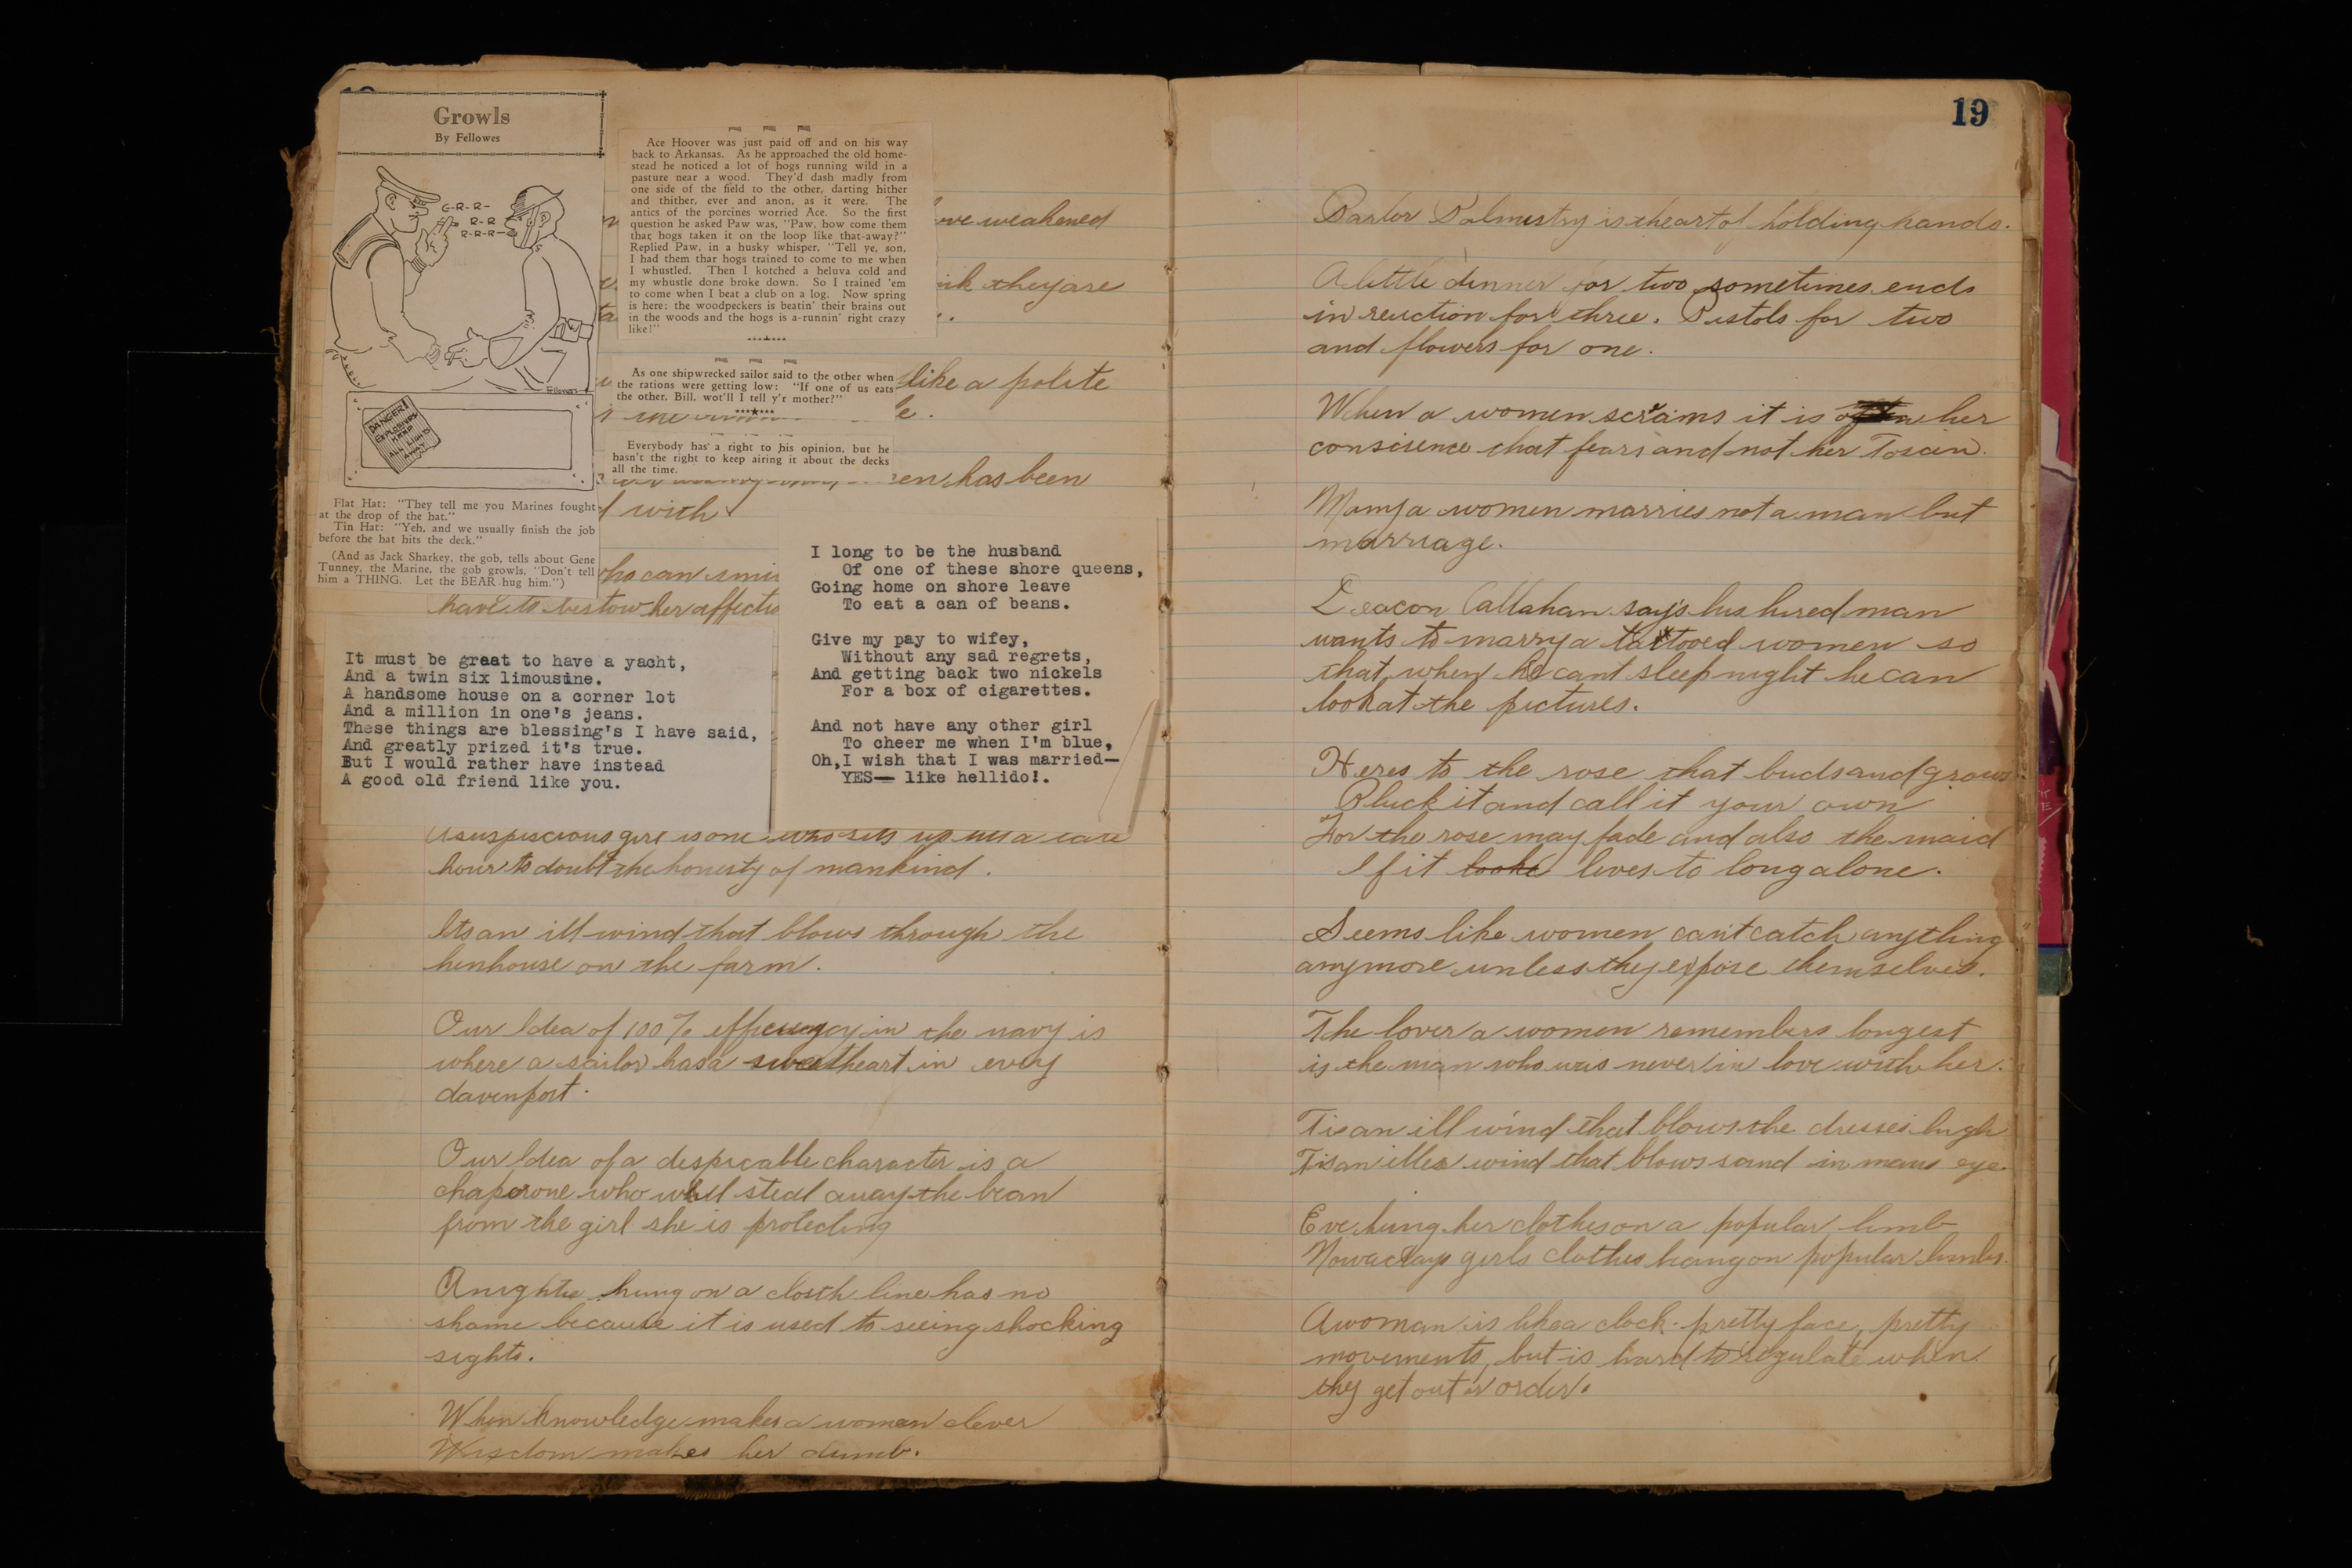 Growls
By Fellowes
G-R-R-
R-R
R-R-R-
Fellowes
DANGER!
EXPLOSIVES
KEEP
ALL LIGHTS
AWAY
Flat Hat: "They tell me you Marines fought
at the drop of the hat."
Tin Hat: "Yeh, and we usually finish the job
before the hat hits the deck."
(And as Jack Sharkey, the gob, tells about Gene
Tunney, the Marine, the gob growls, "Don't tell
him a THING. Let the BEAR hug him.")
Ace Hoover was just paid off and on his way
back to Arkansas. As he approached the old home-
stead he noticed a lot of hogs running wild in a
pasture near a wood. They'd dash madly from
one side of the field to the other, darting hither
and thither, ever and anon, as it were. The
antics of the porcines worried Ace. So the first
question he asked Paw was, "Paw, how come them
that hogs taken it on the loop like that-away?"
Replied Paw, in a husky whisper, "Tell ye, son,
I had them thar hogs trained to come to me when
I whustled. Then I kotched a heluva cold and
my whustle done broke down. So I trained 'em
to come when I beat a club on a log. Now spring
is here; the woodpeckers is beatin' their brains out
in the woods and the hogs is a-runnin' right crazy
like!"
As one shipwrecked sailor said to the other when
the rations were getting low: "If one of us eats
the other, Bill, wot'll I tell y'r mother?"
Everybody has a right to his opinion, but he
hasn't the right to keep airing it about the decks
all the time.
weakened
they are
like a polite
has been
with
who can
have to bestow her
It must be graat to have a yacht,
And a twin six limousine.
A handsome house on a corner lot
And a million in one's jeans.
These things are blessing's I have said,
And greatly prized it's true.
But I would rather have instead
A good old friend like you.
I long to be the husband
Of one of these shore queens,
Going home on shore leave
To eat a can of beans.
Give my pay to wifey,
Without any sad regrets,
And getting back two nickels
For a box of cigarettes.
And not have any other girl
To cheer me when I'm blue,
Oh,I wish that I was married—
YES— like hellido!.
A suspiscious girl is one who sits up till a late
hour to doubt the honesty of mankind.
Its an ill wind that blows through the
henhouse on the farm.
Our Idea of 100% efficiency in the navy is
where a sailor has a sweetheart in evey
davenport.
Our Idea of a despicable character is a
chaperone who will steal away the bean
from the girl she is protecting
A nightie hung on a closth line has no
shame because it is used to seeing shocking
sights.
When knowledge makes a women clever
Wisdom makes her dumb.
19
Parlor Palmistry is the art of holding hands.
A little dinner for two sometimes ends
in reuction for three. Pistols for two
and flowers for one.
When a women screams it is often her
conscience that fears and not her Toscin.
Many a women marries not a man but
marriage.
Deacon Callahan says his hired man
wants to marry a tattooed women so
that when he cant sleep night he can
look at the pictures.
Heres to the rose that buds and grows
Pluck it and call it your own
For the rose may fade and also the maid
If it looks lives to long alone.
Seems like women can't catch anything
anymore unless they expose themselves.
The lover a women remembers longest
is the man who was never in love with her.
Tis an ill wind that blows the dresses high
Tis an iller wind that blows sand in mans eye.
Eve hung her clothes on a popular limb
Nowadays girls clothes hang on popular limbs.
A woman is like a clock. pretty face, pretty
movements, but is hard to regulate when
they get out or order.